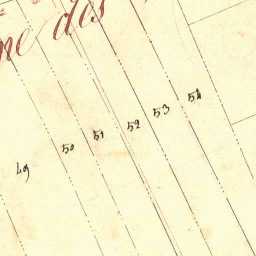 ne des
49 50 51 52 53 54